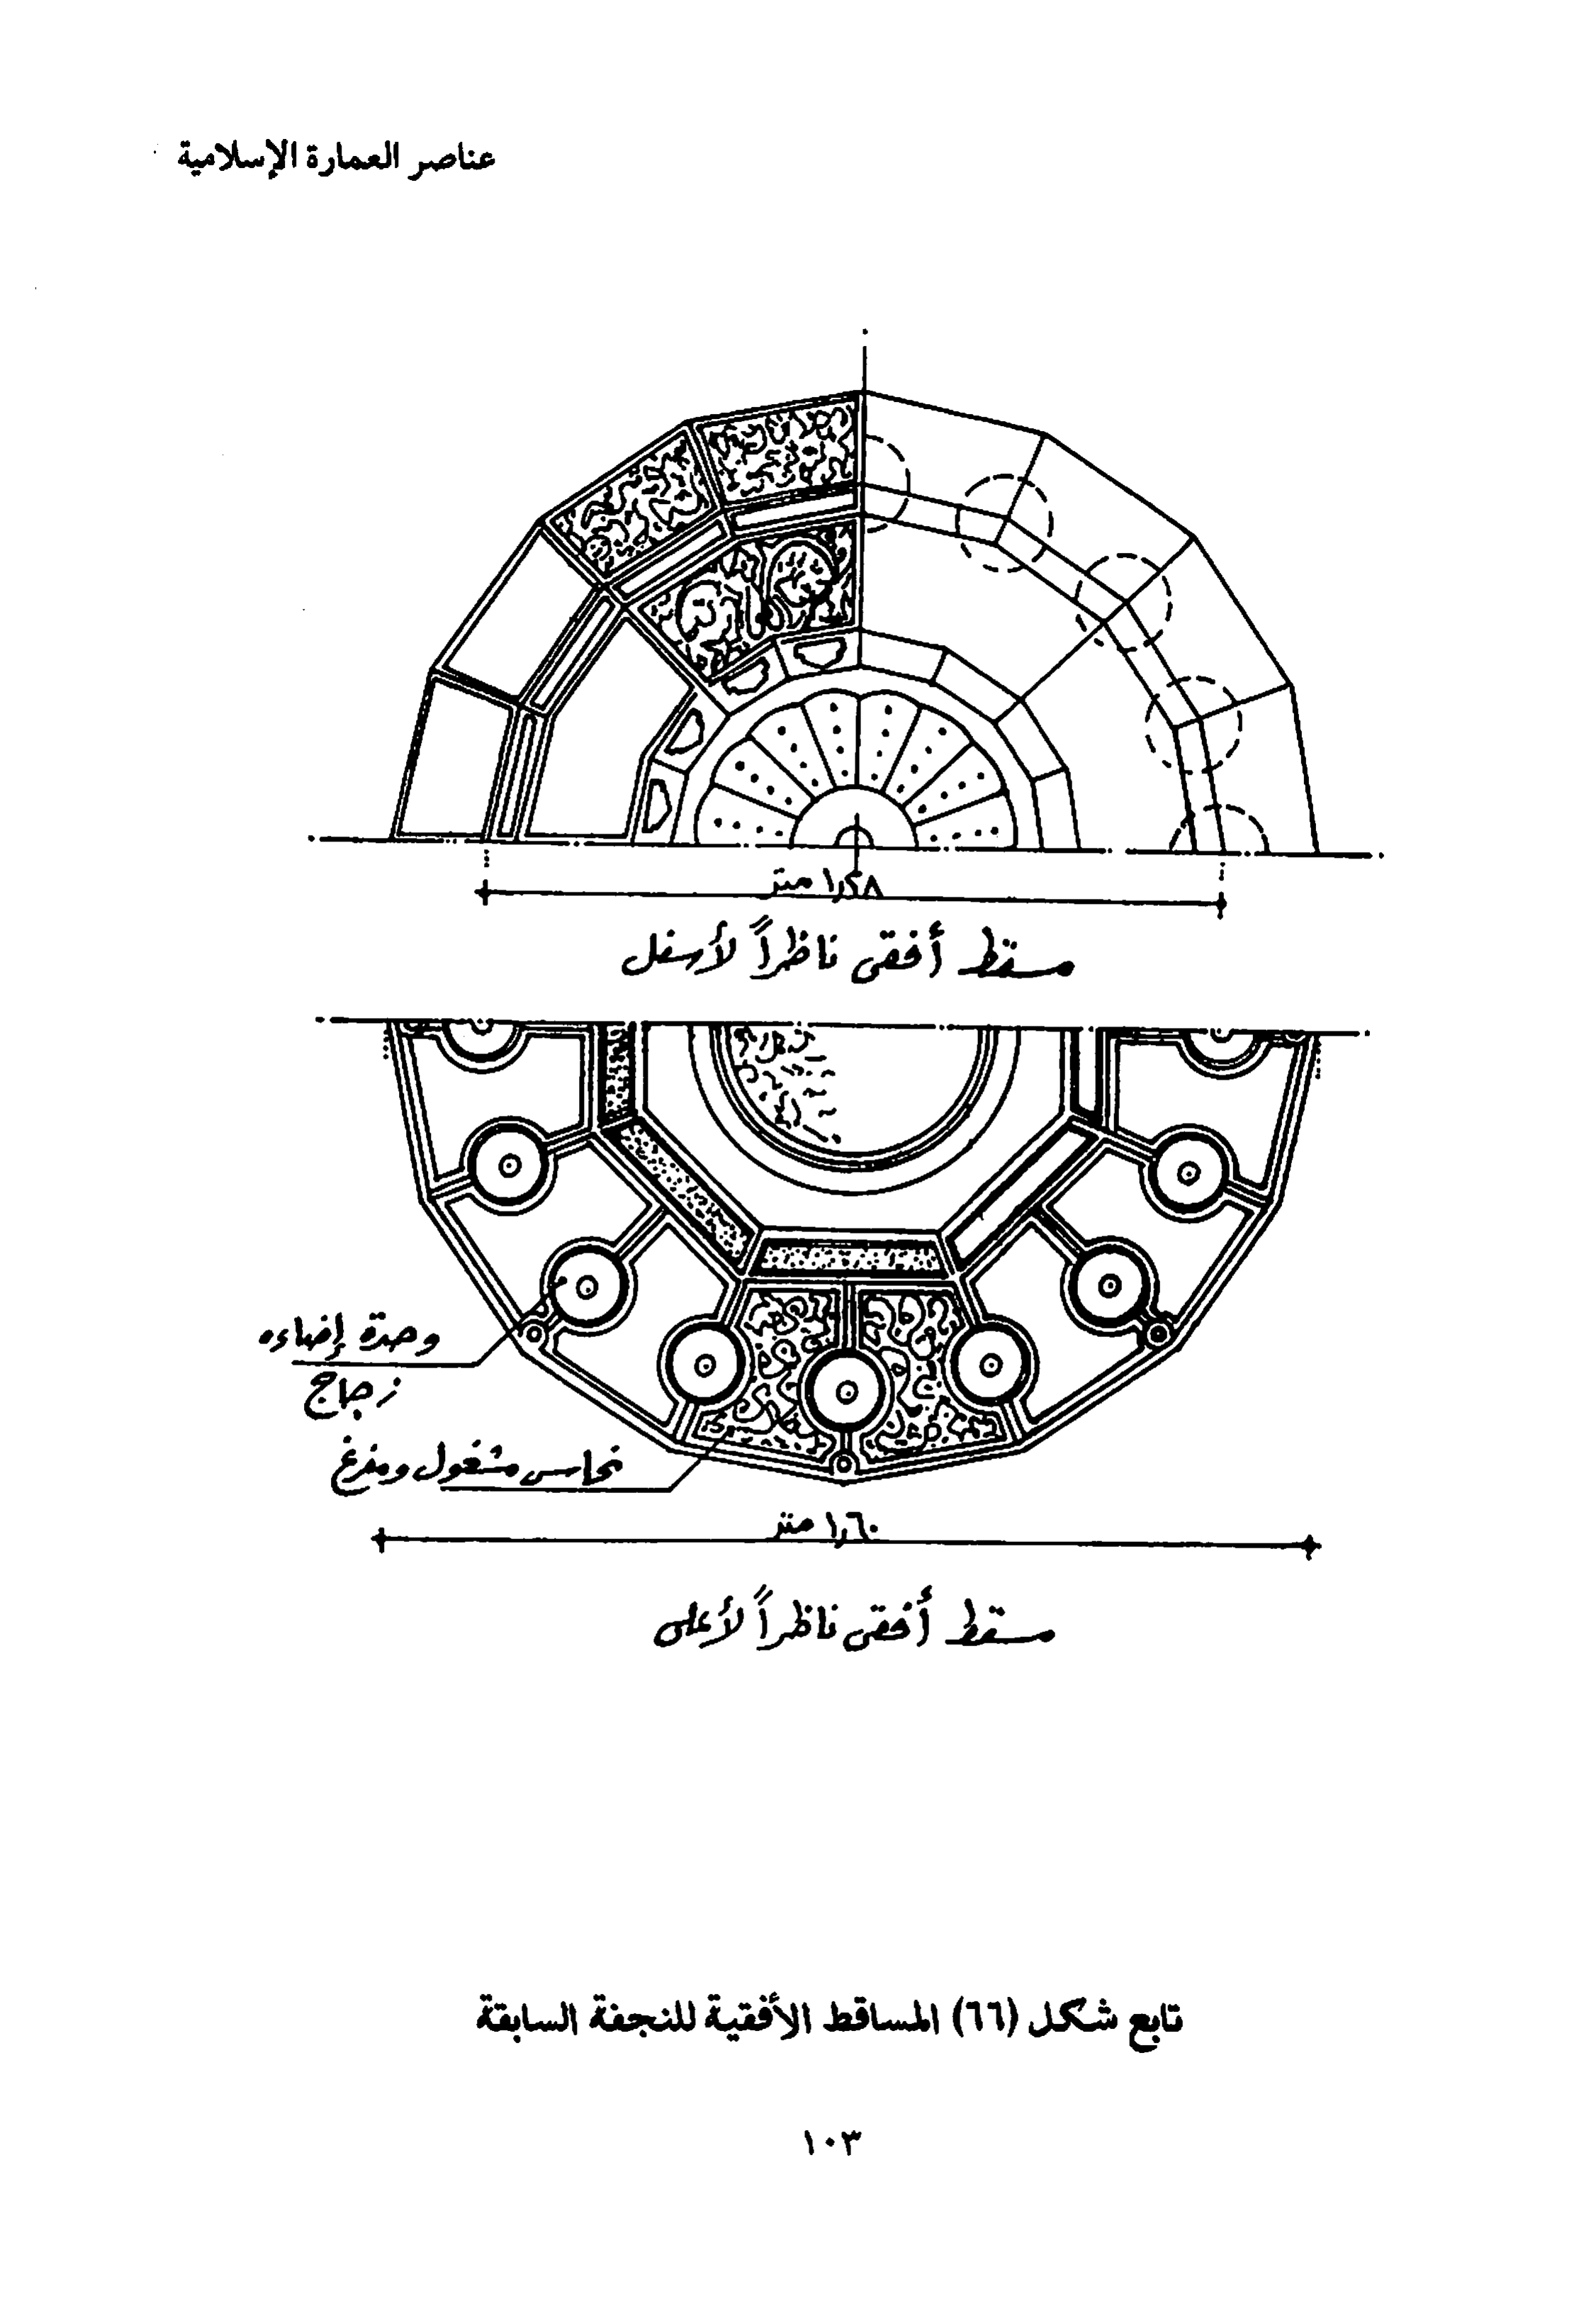 عناصر العمارة الإسلامية
١,٢٨ متر
مسقط أفقى ناظراً لأسفل
وحدة إضاءه
زجاج
نحاس مشغول ومفرغ
١,٦٠ متر
مسقط أفقى ناظراً لأعلى
تابع شكل (٦٦) المساقط الأفقية للنجفة السابقة
١٠٣